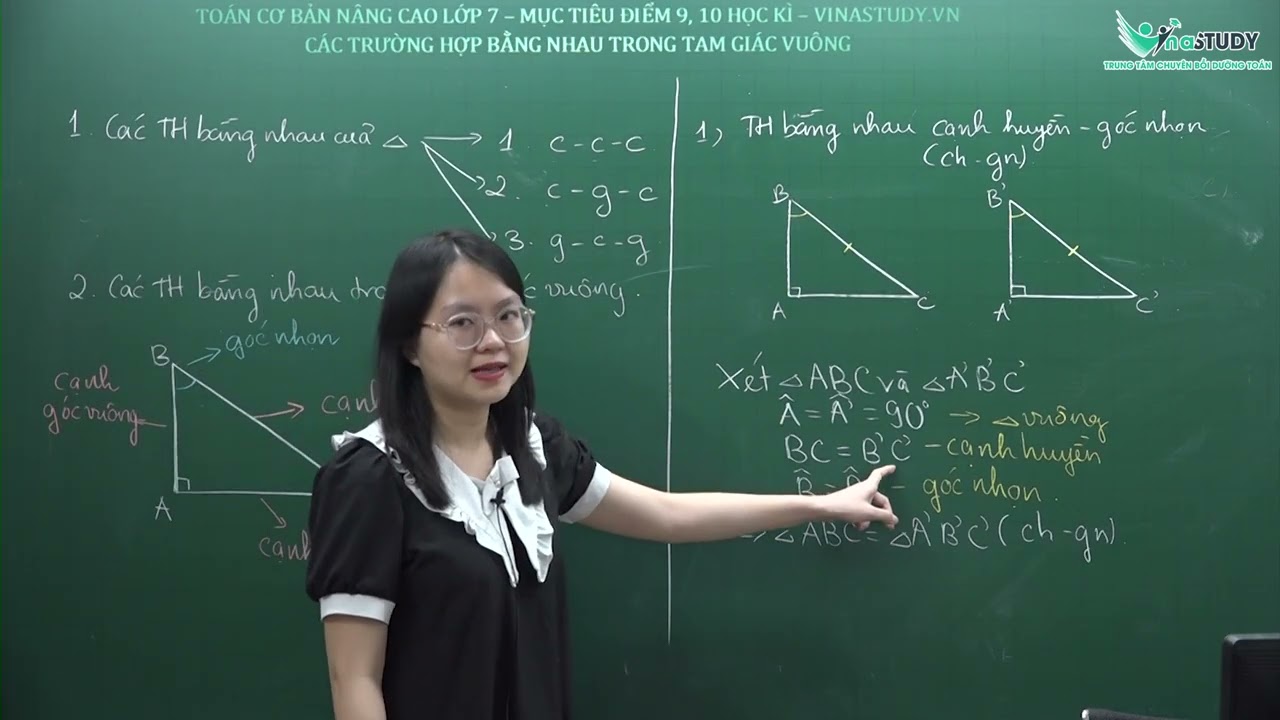 TOÁN CƠ BẢN NÂNG CAO LỚP 7 – MỤC TIÊU ĐIỂM 9, 10 HỌC KÌ – VINASTUDY.VN
CÁC TRƯỜNG HỢP BẰNG NHAU TRONG TAM GIÁC VUÔNG
VinaSTUDY
TRUNG TÂM CHUYÊN BỒI DƯỠNG TOÁN
1. Các TH bằng nhau của △
1. c-c-c
2. c-g-c
3. g-c-g
2. Các TH bằng nhau vuông.
B
góc nhọn
cạnh
góc vuông
cạnh
A
cạnh
1) TH bằng nhau cạnh huyền - góc nhọn
(ch-gn)
B
A
C
B'
A'
C'
Xét △ABC và △A'B'C'
Â = Â' = 90° → △ vuông
BC = B'C' - cạnh huyền
B̂ = - góc nhọn.
→ △ABC = △A'B'C' (ch-gn).